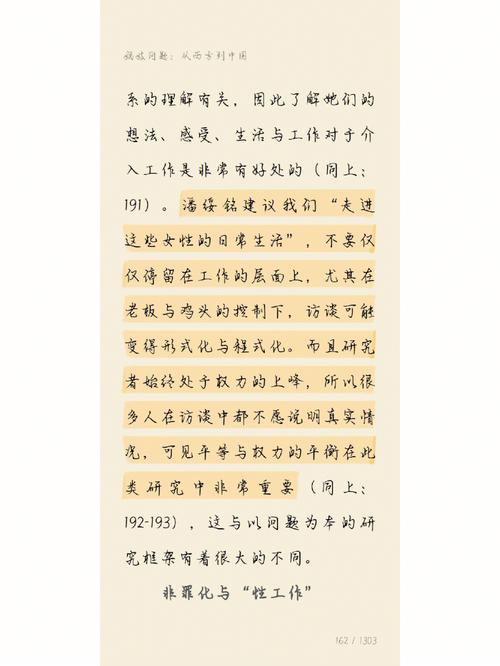 娼妓问题：从西方到中国
系的理解有关，因此了解她们的
想法、感受、生活与工作对于介
入工作是非常有好处的（同上：
191）。潘绥铭建议我们“走进
这些女性的日常生活”，不要仅
仅停留在工作的层面上，尤其在
老板与鸡头的控制下，访谈可能
变得形式化与程式化。而且研究
者始终处于权力的上峰，所以很
多人在访谈中都不愿说明真实情
况，可见平等与权力的平衡在此
类研究中非常重要（同上：
192-193），这与以问题为本的研
究框架有着很大的不同。
非罪化与“性工作”
162 / 1303